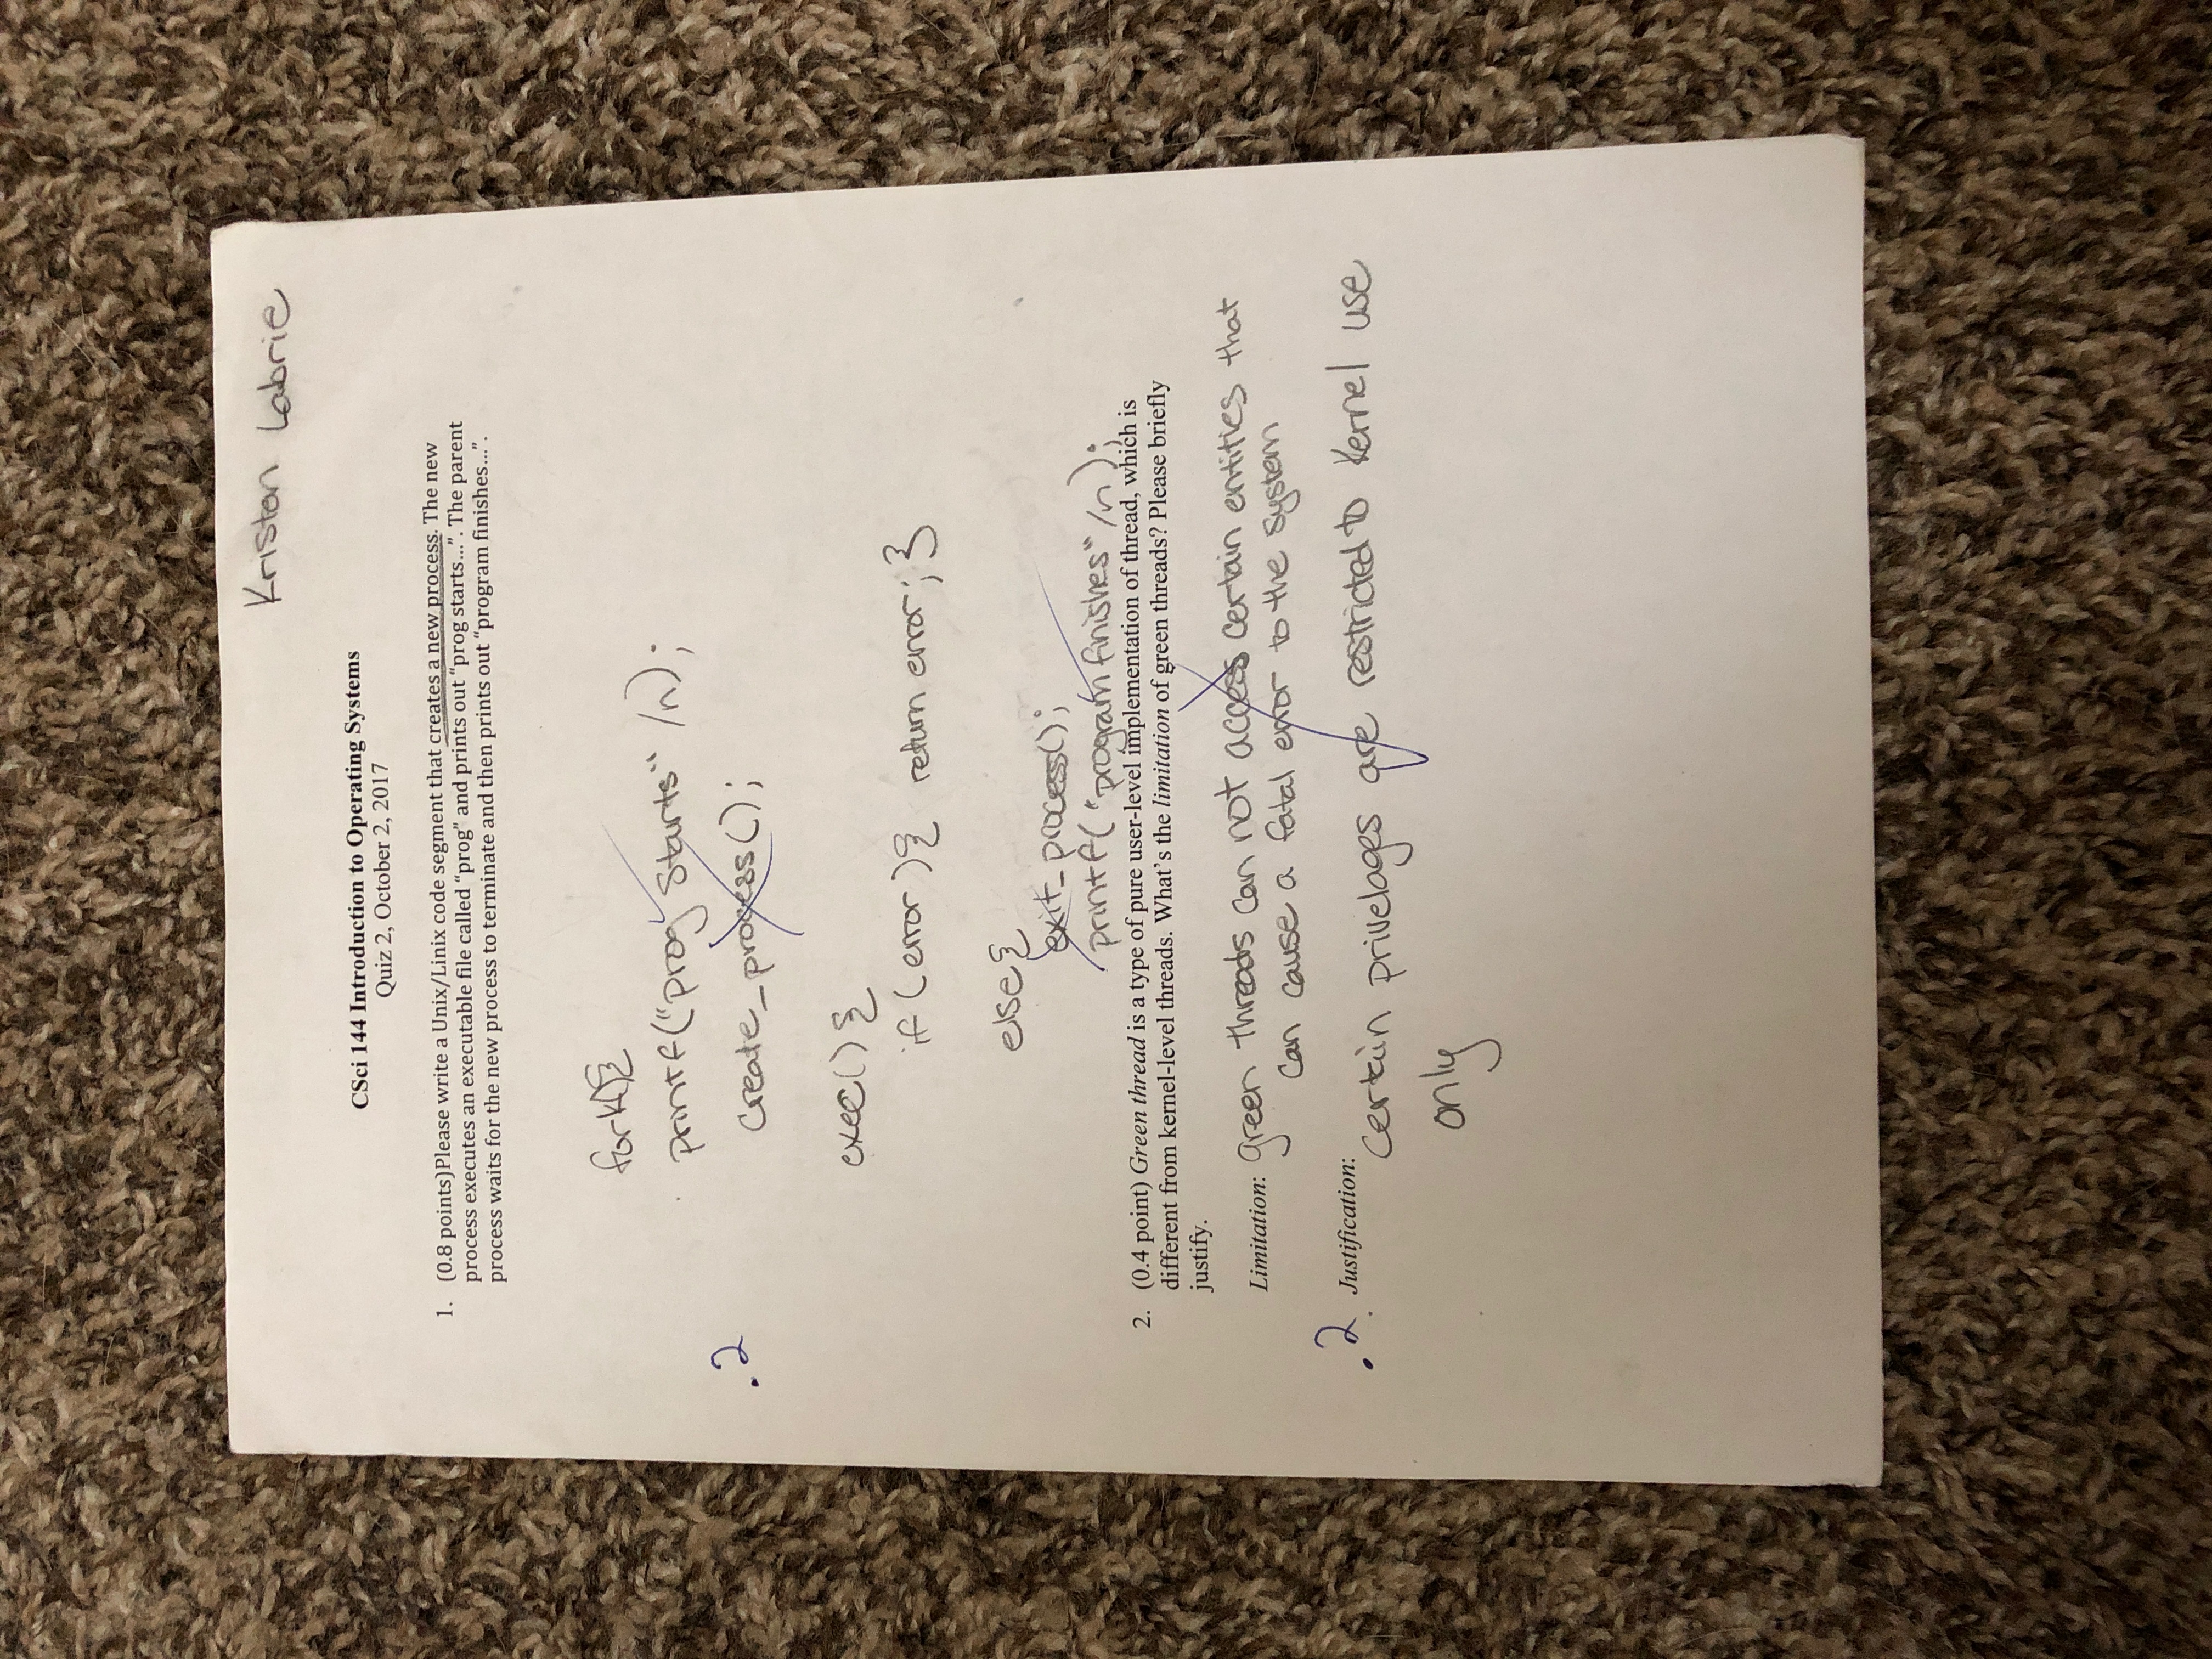 Kristen Labrie
CSci 144 Introduction to Operating Systems
Quiz 2, October 2, 2017
1. (0.8 points)Please write a Unix/Linix code segment that creates a new process. The new
process executes an executable file called “prog” and prints out “prog starts...”. The parent
process waits for the new process to terminate and then prints out “program finishes...”.
fork(){
printf("prog starts" /n);
.2
create_process();
exec() {
if (error){ return error; }
else{
exit_process();
printf( "program finishes" /n );
2. (0.4 point) Green thread is a type of pure user-level implementation of thread, which is
different from kernel-level threads. What’s the limitation of green threads? Please briefly
justify.
Limitation: green threads can not access certain entities that
can cause a fatal error to the system
.2 Justification: Certain privelages are restricted to Kernel use
only